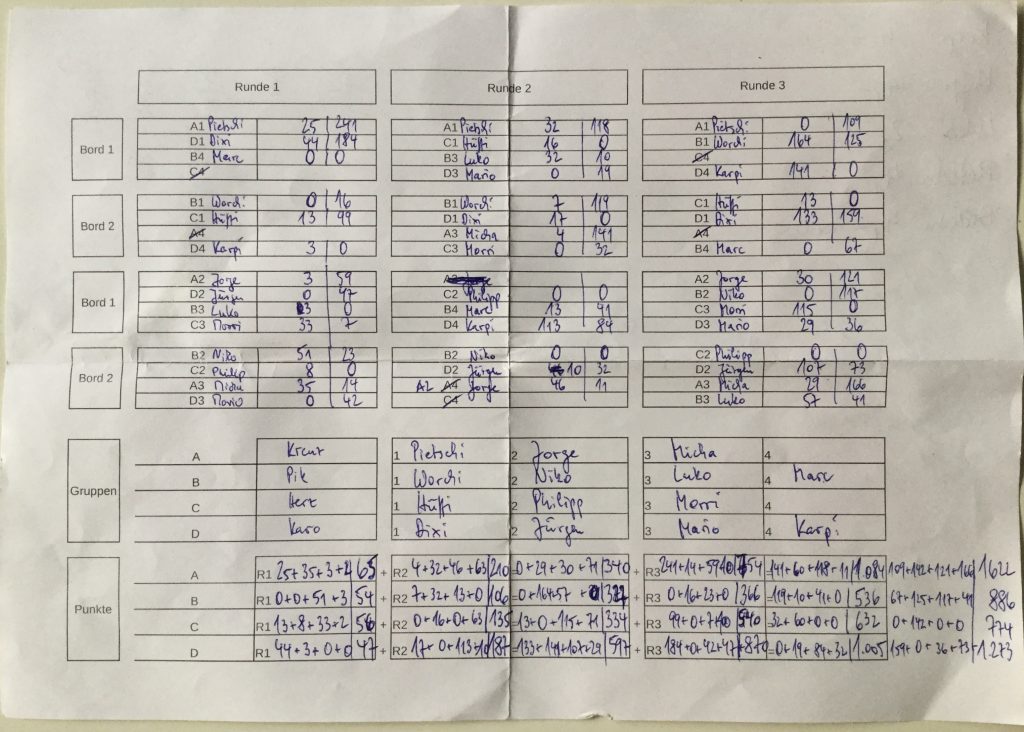 Runde 1 Runde 2 Runde 3
Bord 1
A1 Pietschi 25 241 A1 Pietschi 32 118 A1 Pietschi 0 109
D1 Dixi 44 184 C1 Hüffi 16 0 B1 Worchi 164 125
B4 Marc 0 0 B3 Luko 32 10 C4
C4 D3 Mario 0 19 D4 Karpi 141 0
Bord 2
B1 Worchi 0 16 B1 Worchi 7 119 C1 Hüffi 13 0
C1 Hüffi 13 99 D1 Dixi 17 0 D1 Dixi 133 159
A4 A3 Micha 4 141 A4
D4 Karpi 3 0 C3 Morri 0 32 B4 Marc 0 67
Bord 1
A2 Jorge 3 59 A2 Jorge A2 Jorge 30 121
D2 Jürgen 0 47 C2 Philipp 0 0 B2 Niko 0 117
B3 Luko 3 0 B4 Marc 13 41 C3 Morri 115 0
C3 Morri 33 7 D4 Karpi 113 84 D3 Mario 29 36
Bord 2
B2 Niko 51 23 B2 Niko 0 0 C2 Philipp 0 0
C2 Philip 8 0 D2 Jürgen 10 32 D2 Jürgen 107 73
A3 Micha 35 14 A2 A4 Jorge 46 11 A3 Micha 29 166
D3 Mario 0 42 C4 B3 Luko 57 41
Gruppen
A Kreuz 1 Pietschi 2 Jorge 3 Micha 4
B Pik 1 Worchi 2 Niko 3 Luko 4 Marc
C Herz 1 Hüffi 2 Philipp 3 Morri 4
D Karo 1 Dixi 2 Jürgen 3 Mario 4 Karpi
Punkte
A R1 25+35+3+2 65 + R2 4+32+46+63 210 =0+29+30+71 340 + R3 241+14+59+0 654 =141+60+118+11 1.084 109+142+121+166 1622
B R1 0+0+51+3 54 + R2 7+32+13+0 106 =0+164+57+0 327 + R3 0+16+23+0 366 =119+10+41+0 536 67+125+117+41 886
C R1 13+8+33+2 56 + R2 0+16+0+63 135 =13+0+115+71 334 + R3 99+0+7+0 540 =32+60+0+0 632 0+142+0+0 774
D R1 44+3+0+0 47 + R2 17+0+113+10 187 =133+141+107+29 597 + R3 184+0+42+47 870 =0+19+84+32 1.005 159+0+36+73 1.273